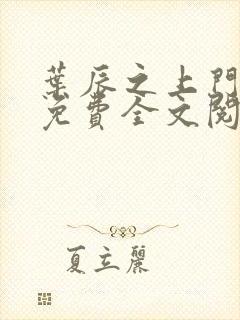 葉辰之上門
免費全文閱
夏立麗